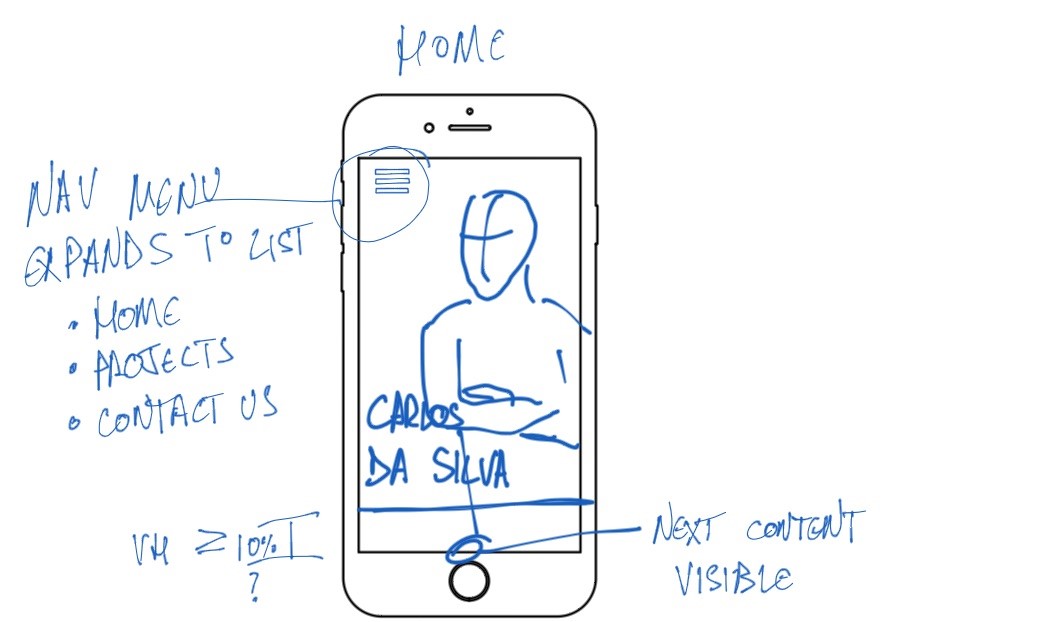 HOME
NAV MENU
EXPANDS TO LIST
• HOME
• PROJECTS
• CONTACT US
CARLOS
DA SILVA
VH ≥ 10%
?
NEXT CONTENT
VISIBLE